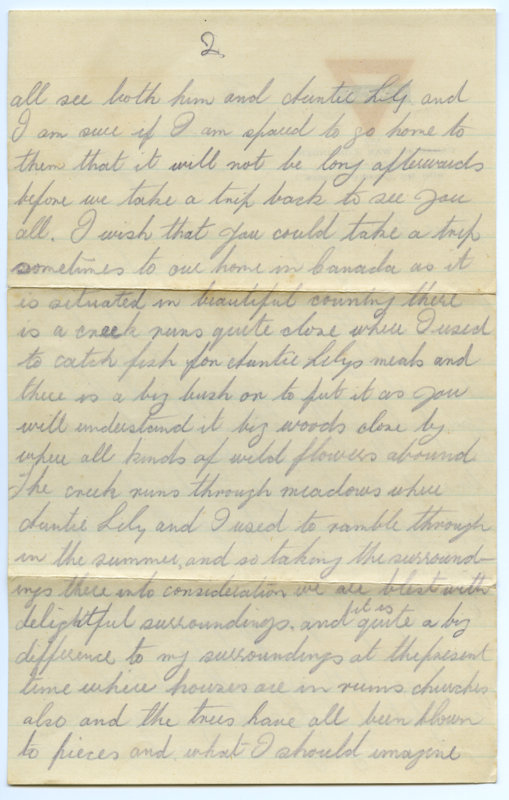 2
all see both him and Auntie Lily and
I am sure if I am spared to go home to
them that it will not be long afterwards
before we take a trip back to see you
all. I wish that you could take a trip
sometimes to our home in Canada as it
is situated in beautiful country there
is a creek runs quite close where I used
to catch fish for Auntie Lilys meals and
there is a big bush or to put it as you
will understand it big woods close by
where all kinds of wild flowers abound
The creek runs through meadows where
Auntie Lily and I used to ramble through
in the summer, and so taking the surround-
ings there into consideration we are blest with
delightful surroundings. and it is quite a big
difference to my surroundings at the present
time where houses are in ruins churches
also and the trees have all been blown
to pieces and what I should imagine